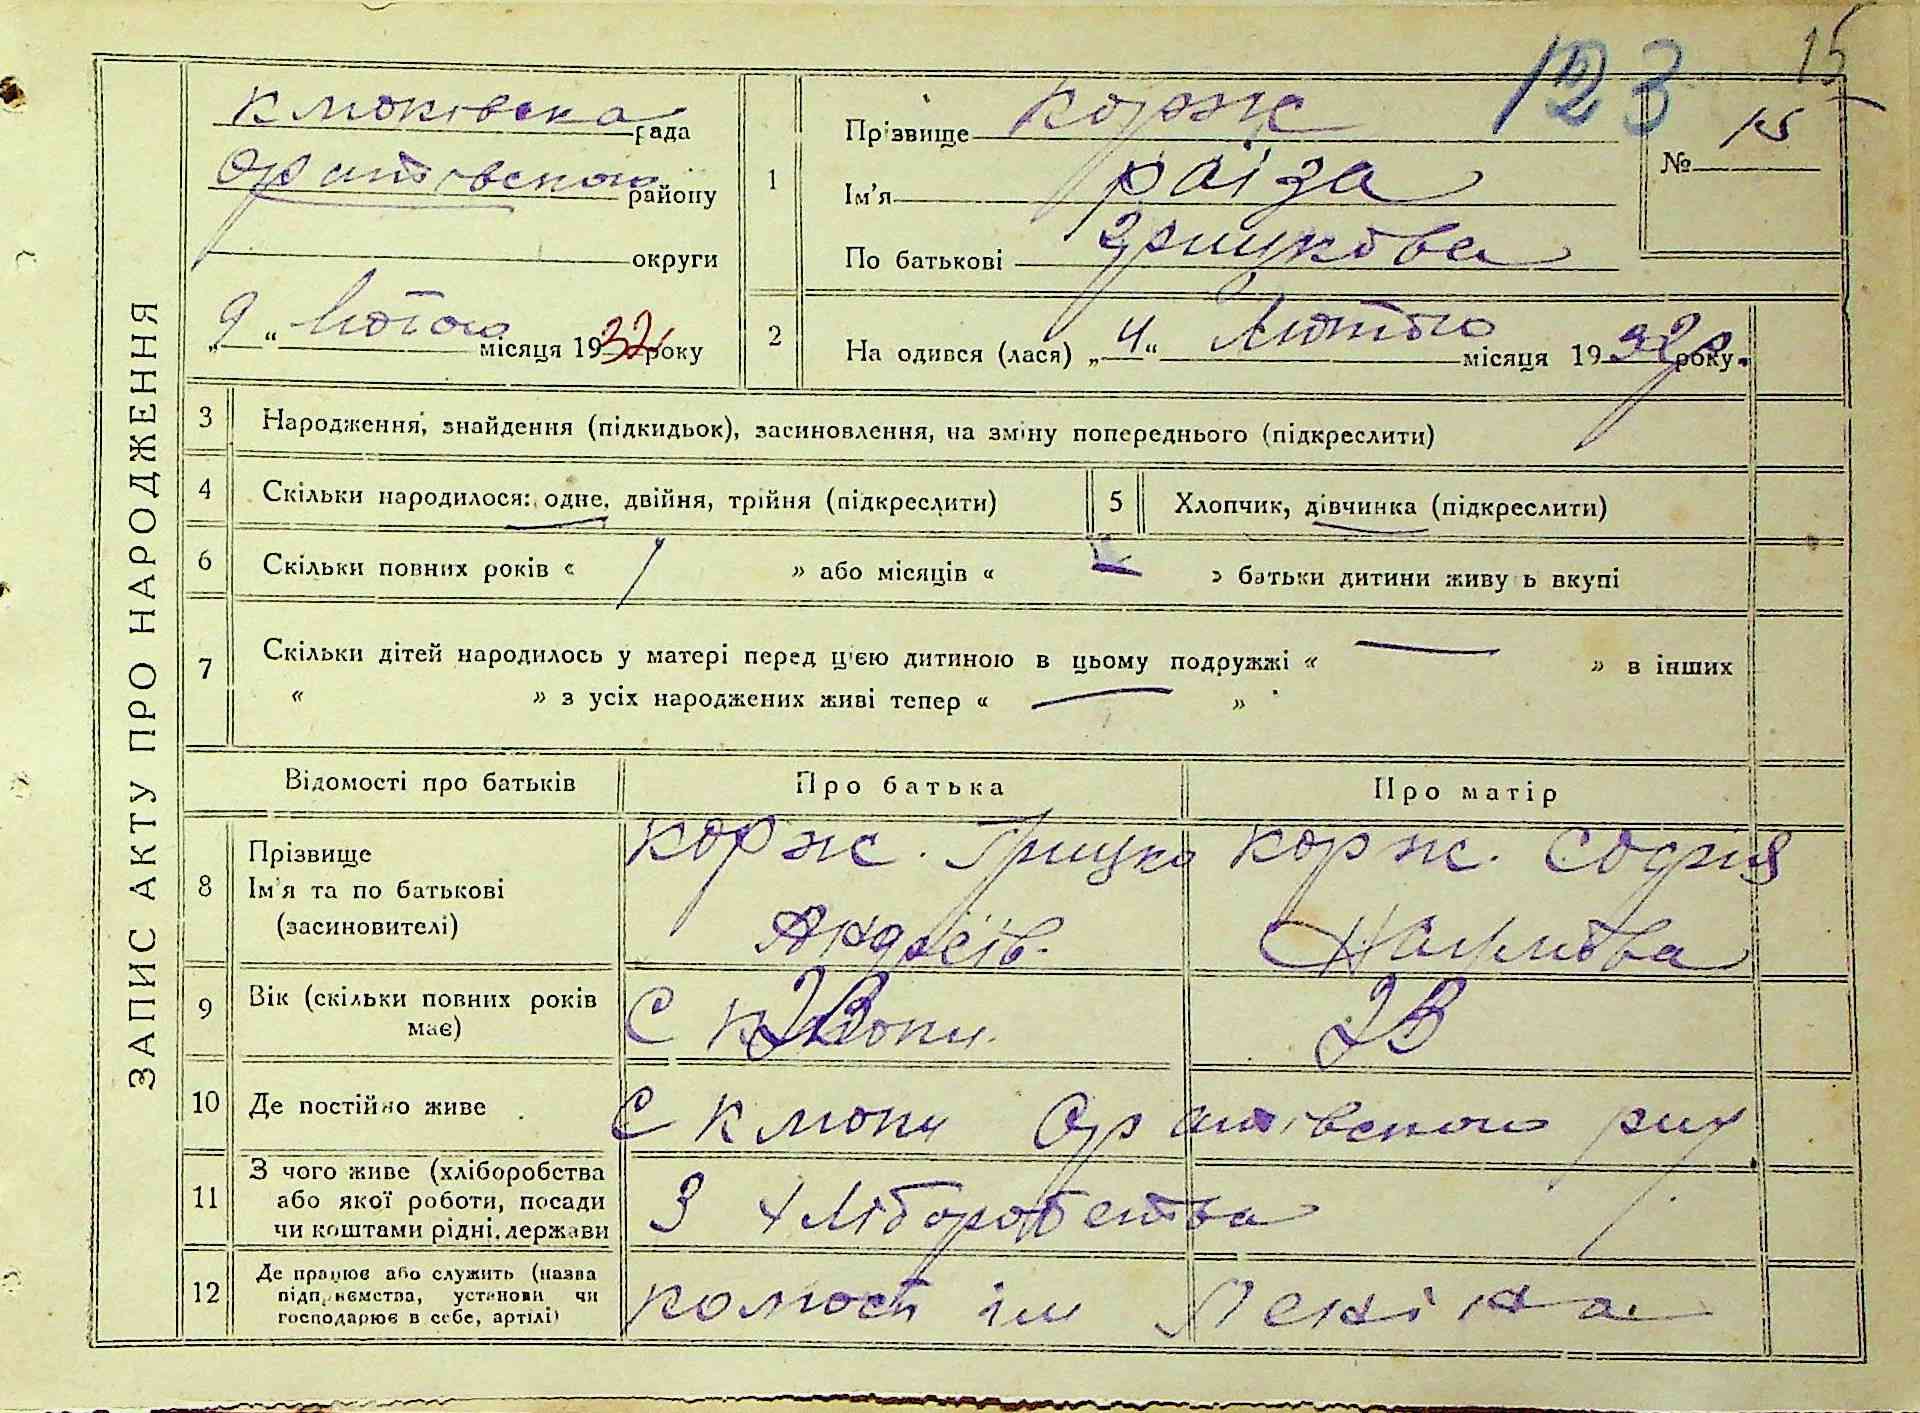 123
15
Клюківська рада
Оратівського району
округи
„ 9 “ Лютого місяця 1932 року
1
Прізвище Корж
Ім'я Раіза
По батькові Грицкова
№ 15
2
На одився (лася) „ 4 “ Лютого місяця 1932р року.
ЗАПИС АКТУ ПРО НАРОДЖЕННЯ
3 Народження, знайдення (підкидьок), засиновлення, на зміну попереднього (підкреслити)
4 Скільки народилося: одне, двійня, трійня (підкреслити)
5 Хлопчик, дівчинка (підкреслити)
6 Скільки повних років « 1 » або місяців « — » батьки дитини живу ь вкупі
7 Скільки дітей народилось у матері перед цією дитиною в цьому подружжі « — » в інших
« » з усіх народжених живі тепер « — »
Відомості про батьків
Про батька
Про матір
8 Прізвище
Ім'я та по батькові
(засиновителі)
Корж. Грицко
Андреів.
Корж. Софія
Наумова
9 Вік (скільки повних років
має)
С Клюки.
23
23
10 Де постійно живе
С Клюки Оратівського
11 З чого живе (хліборобства
або якої роботи, посади
чи коштами рідні, держави
З хліборобства
12 Де працює або служить (назва
підприємства, установи чи
господарює в себе, артілі)
колгосп ім Леніна